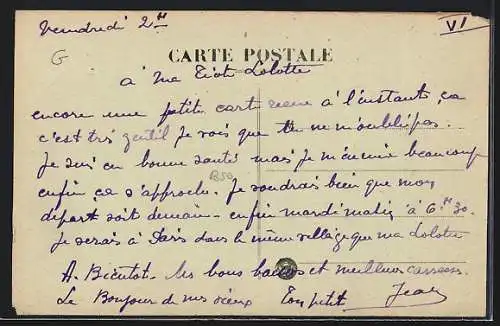 Vendredi 2H
VI
G
CARTE POSTALE
à ma Tiot Lolotte
encore une petite cart recue à l'instants, ca
c'est trs gentil je vois que tu ne m'oubli pas.
Je suis en bonne santé mais je m'ennuie beaucoup
B50
enfin, ca s'approche. Je voudrais bien que mon
départ soit demain – enfin mardi matin à 6H30.
Je serais à Paris dans le même village que ma Lolotte
A. Bientot. les bons baisers et meilleurs caresses.
Le Bonjour de mes vieux Ton petit Jean